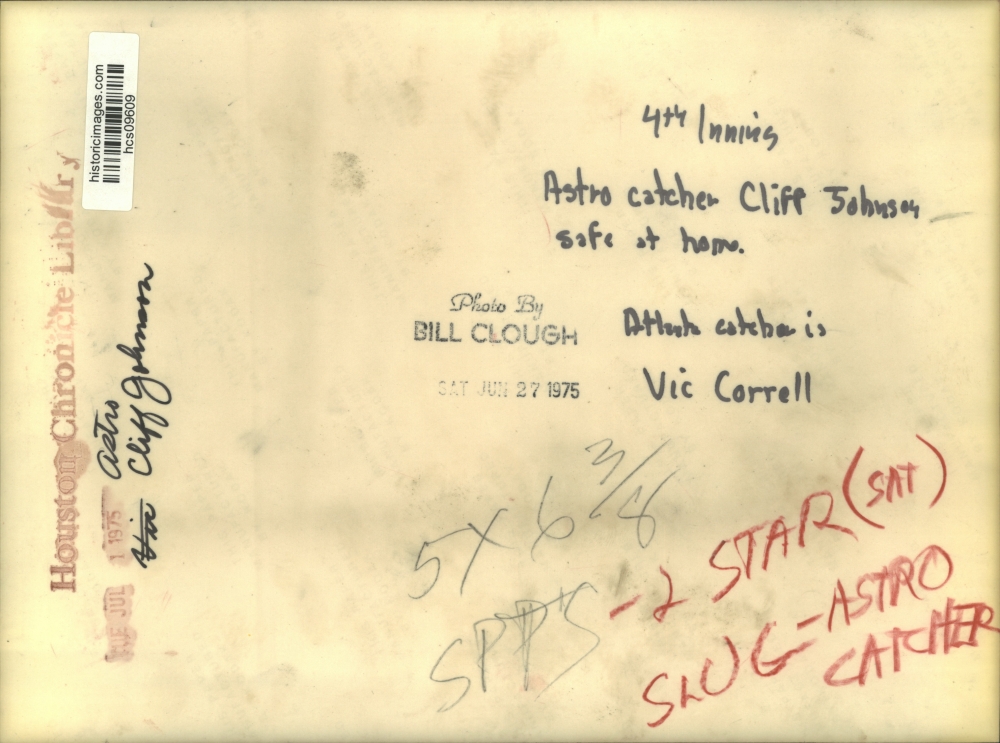 historicimages.com
hcs09609
Houston Chronicle Library
TUE JUL 1 1975
Astro
Cliff Johnson
4th Inning
Astro catcher Cliff Johnson
safe at home.
Photo By
BILL CLOUGH
SAT JUN 27 1975
Atlanta catcher is
Vic Correll
5 X 6 3/8
-2 STAR (SAT)
SLUG-ASTRO
CATCHER